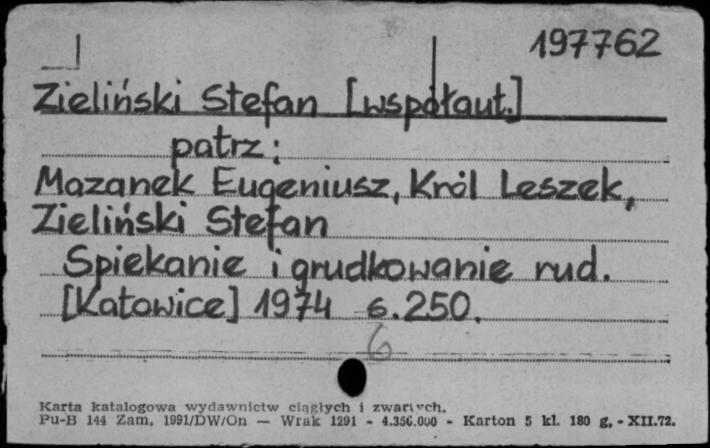 197762
Zieliński Stefan [współaut.]
patrz:
Mazanek Eugeniusz, Król Leszek,
Zieliński Stefan
Spiekanie i grudkowanie rud.
[Katowice] 1974 s. 250.
6
Karta katalogowa wydawnictw ciągłych i zwartych.
Pu-B 144 Zam. 1991/DW/On — Wrak 1291 - 4.356.000 - Karton 5 kl. 180 g, - XII.72.